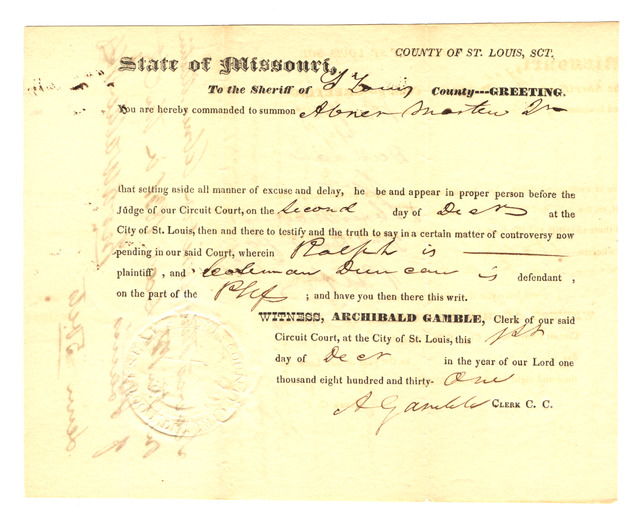 COUNTY OF ST. LOUIS, SCT.
State of Missouri,
To the Sheriff of St Louis County---GREETING.
You are hereby commanded to summon Abner
that setting aside all manner of excuse and delay, he be and appear in proper person before the
Judge of our Circuit Court, on the Second day of Decr at the
City of St. Louis, then and there to testify and the truth to say in a certain matter of controversy now
pending in our said Court, wherein Ralph is
plaintiff , and Coleman Duncan is defendant ,
on the part of the Plff ; and have you then there this writ.
WITNESS, ARCHIBALD GAMBLE, Clerk of our said
Circuit Court, at the City of St. Louis, this 1st
day of Decr in the year of our Lord one
thousand eight hundred and thirty- One
A Gamble CLERK C. C.